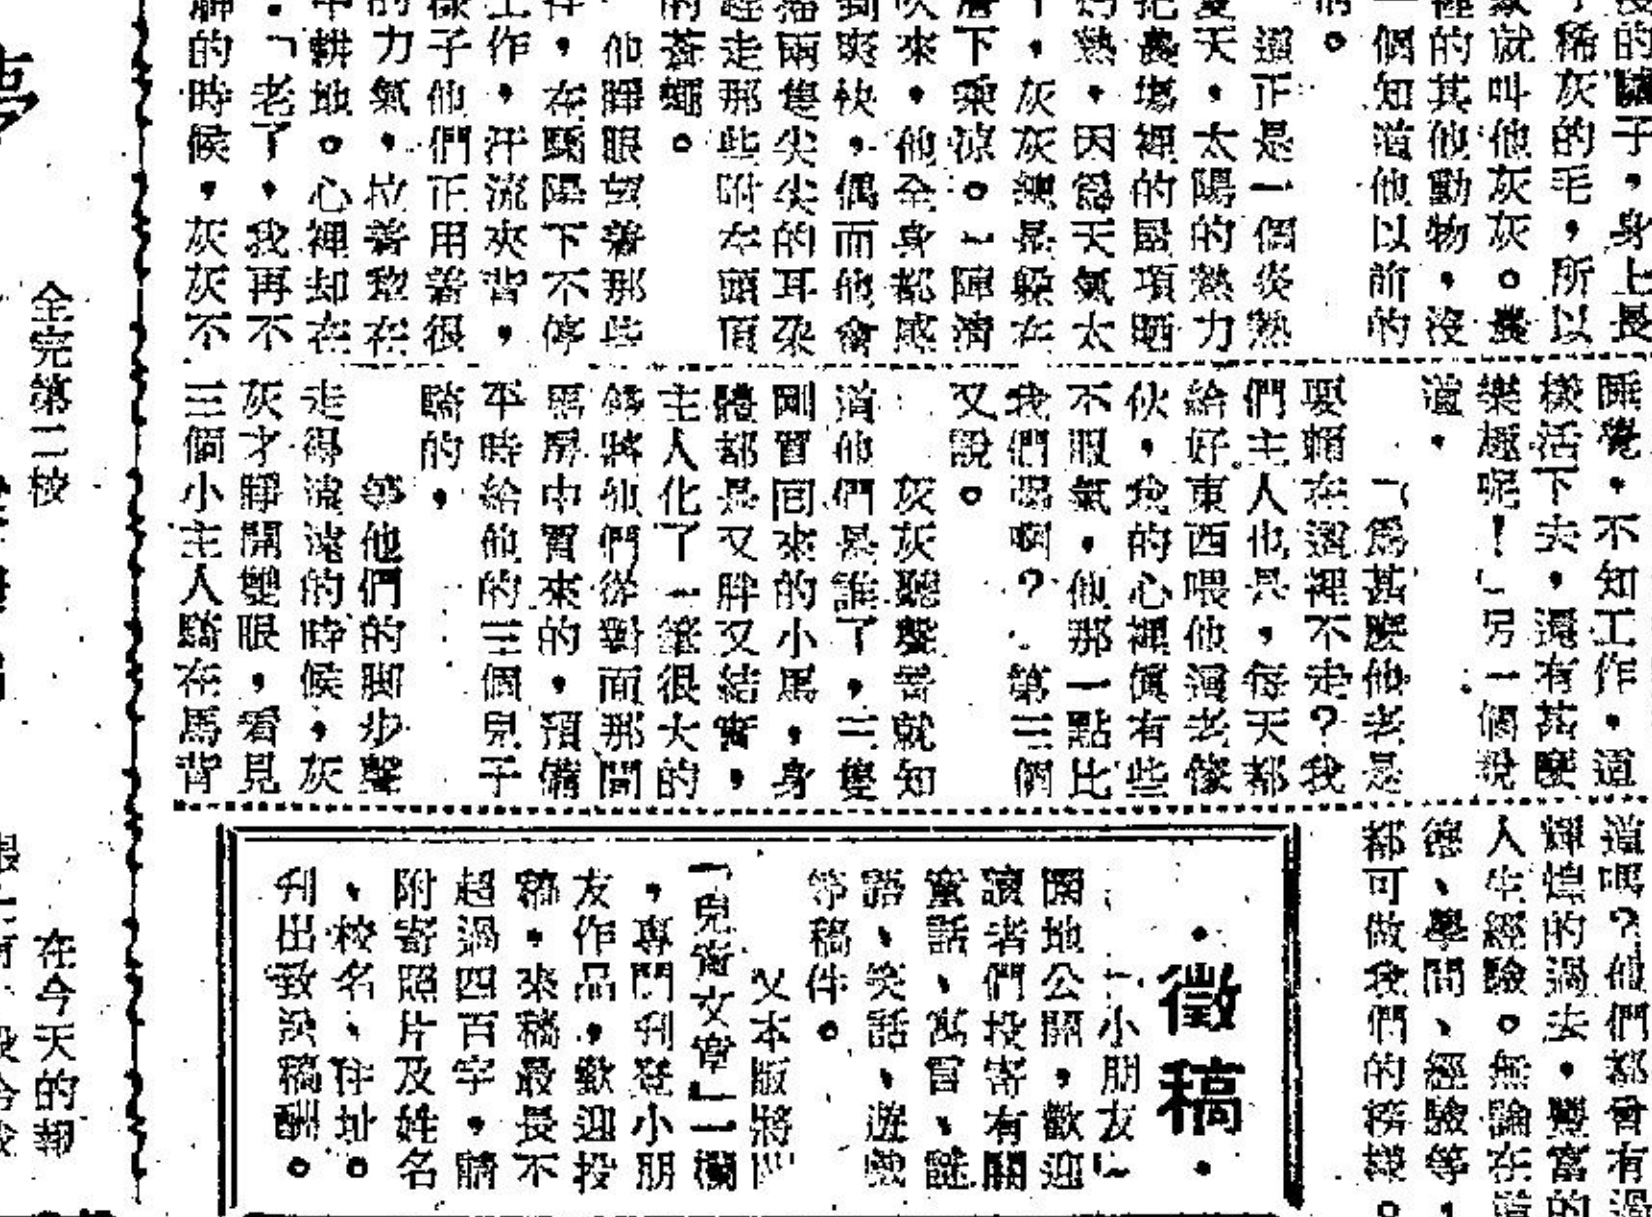 的驢子，身上長
稀灰的毛，所以
就叫他灰灰。農
裡的其他動物，沒
一個知道他以前的
。
這正是一個炎熱
夏天，太陽的熱力
把農場裡的屋頂晒
熱，因為天氣太
，灰灰總是躲在
下乘涼。一陣清
吹來，他全身都感
到爽快，偶而他會
搖兩隻尖尖的耳朶
趕走那些咐在頭頂
的蒼蠅。
他睜眼望着那些
，在驕陽下不停
工作，汗流夾背，
樣子他們正用着很
的力氣，拉着犂在
中耕地。心裡却在
：「老了，我再不
的時候，灰灰不
睡覺，不知工作，這
樣活下去，還有甚麼
樂趣呢！」另一個說
道。
「爲甚麼他老是
要賴在這裡不走？我
們主人也是，每天都
給好東西喂他這老傢
伙，我的心裡眞有些
不服氣，他那一點比
我們强啊？」第三個
又說。
灰灰聽聲音就知
道他們是誰了，三隻
剛買回來的小馬，身
體都是又胖又結實，
主人化了一筆很大的
錢將他們從對面那間
馬房中買來的，預備
平時給他的三個兒子
騎的，
等他們的脚步聲
走得遠遠的時候，灰
灰才睜開雙眼，看見
三個小主人騎在馬背
道嗎？他們都曾有過
輝煌的過去，豐富的
人生經驗。無論在道
德、學問、經驗等，
都可做我們的榜樣。
·徵稿·
「小朋友」
園地公開，歡迎
讀者們投寄有關
童話、寓言、謎
語、笑話、遊戲
等稿件。
又本版將闢
「兒童文章」一欄
，專門刊登小朋
友作品，歡迎投
稿，來稿最長不
超過四百字，請
附寄照片及姓名
、校名、住址。
刊出致送稿酬。
夢
全完第二校
在今天的報